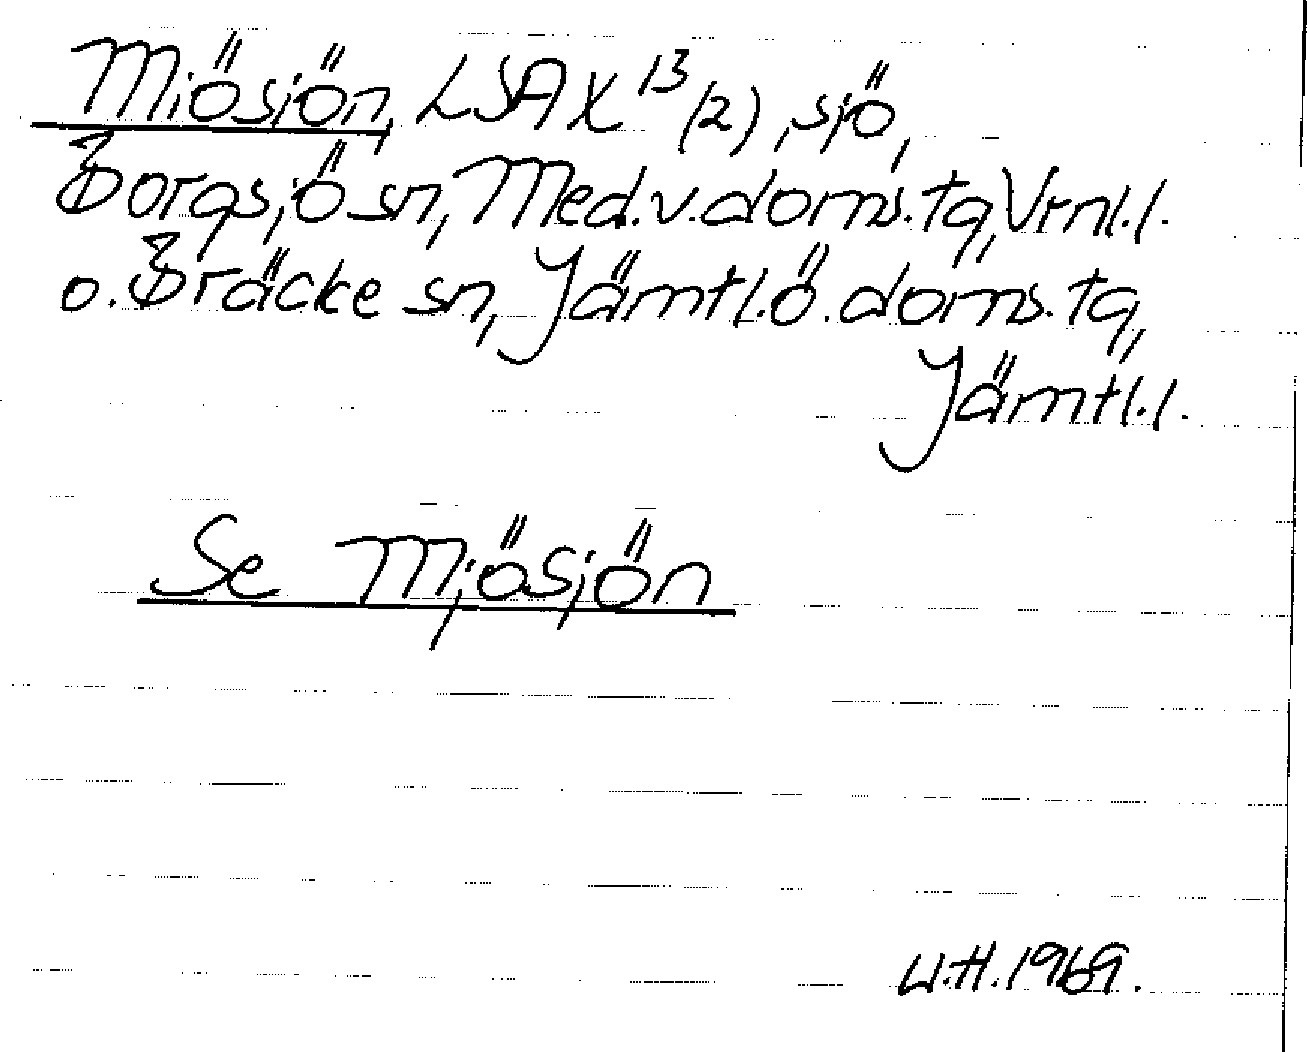 Miösjön, LSA X 13 (2), sjö,
Borgsjö sn, Med.v.doms.tg, Vrnl.l.
o. Bräcke sn, Jämtl.ö.doms.tg,
Jämtl.l.
Se Mjösjön
W.H.1969.